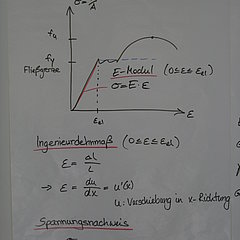 σ = F/A
fu
fy
Fließgrenze
E-Modul (0 ≤ ε ≤ εel)
σ = E · ε
εel
ε
Ingenieurdehnmaß (0 ≤ ε ≤ εel)
ε = Δl/L
→ ε = du/dx = u'(x)
u: Verschiebung in x-Richtung
Spannungsnachweis